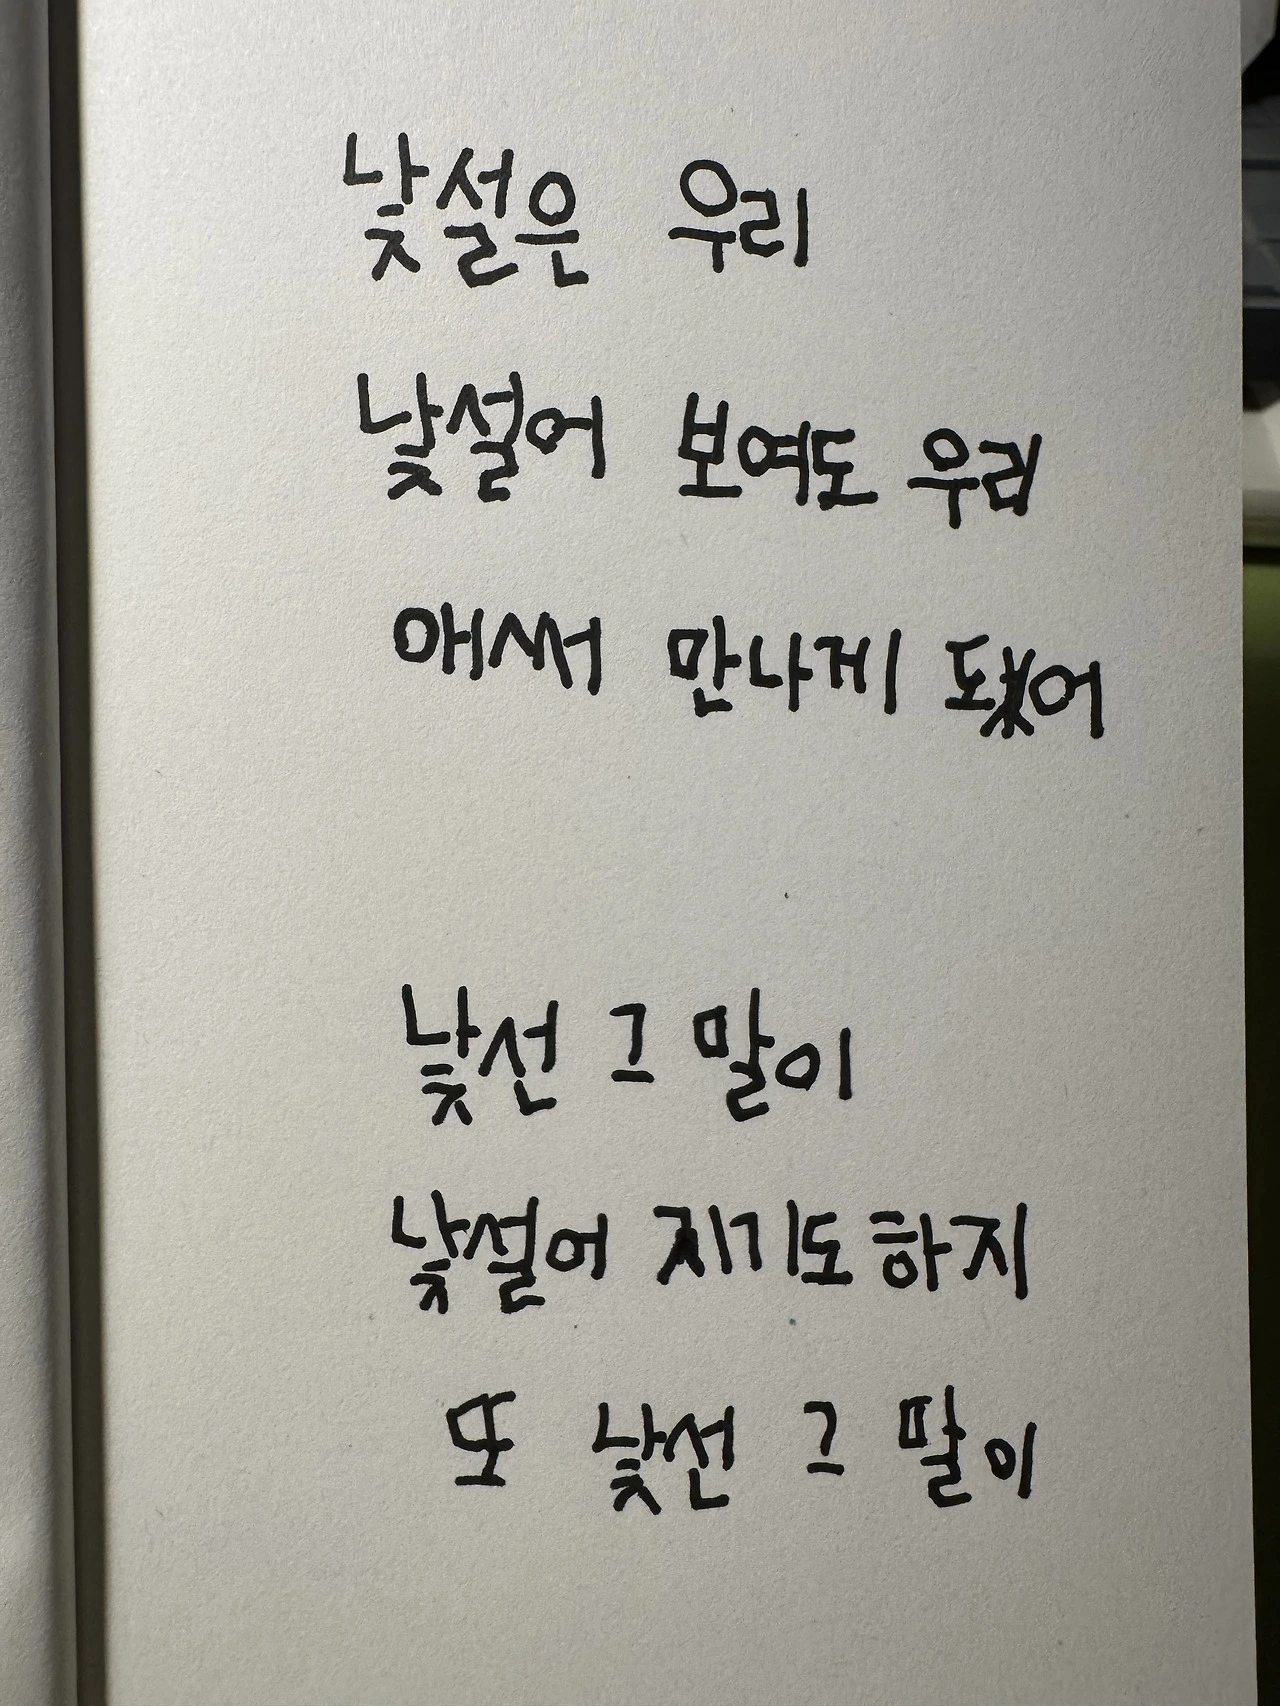 낯설은 우리
낯설어 보여도 우리
애써 만나게 됐어
낯선 그 말이
낯설어 지기도 하지
또 낯선 그 말이